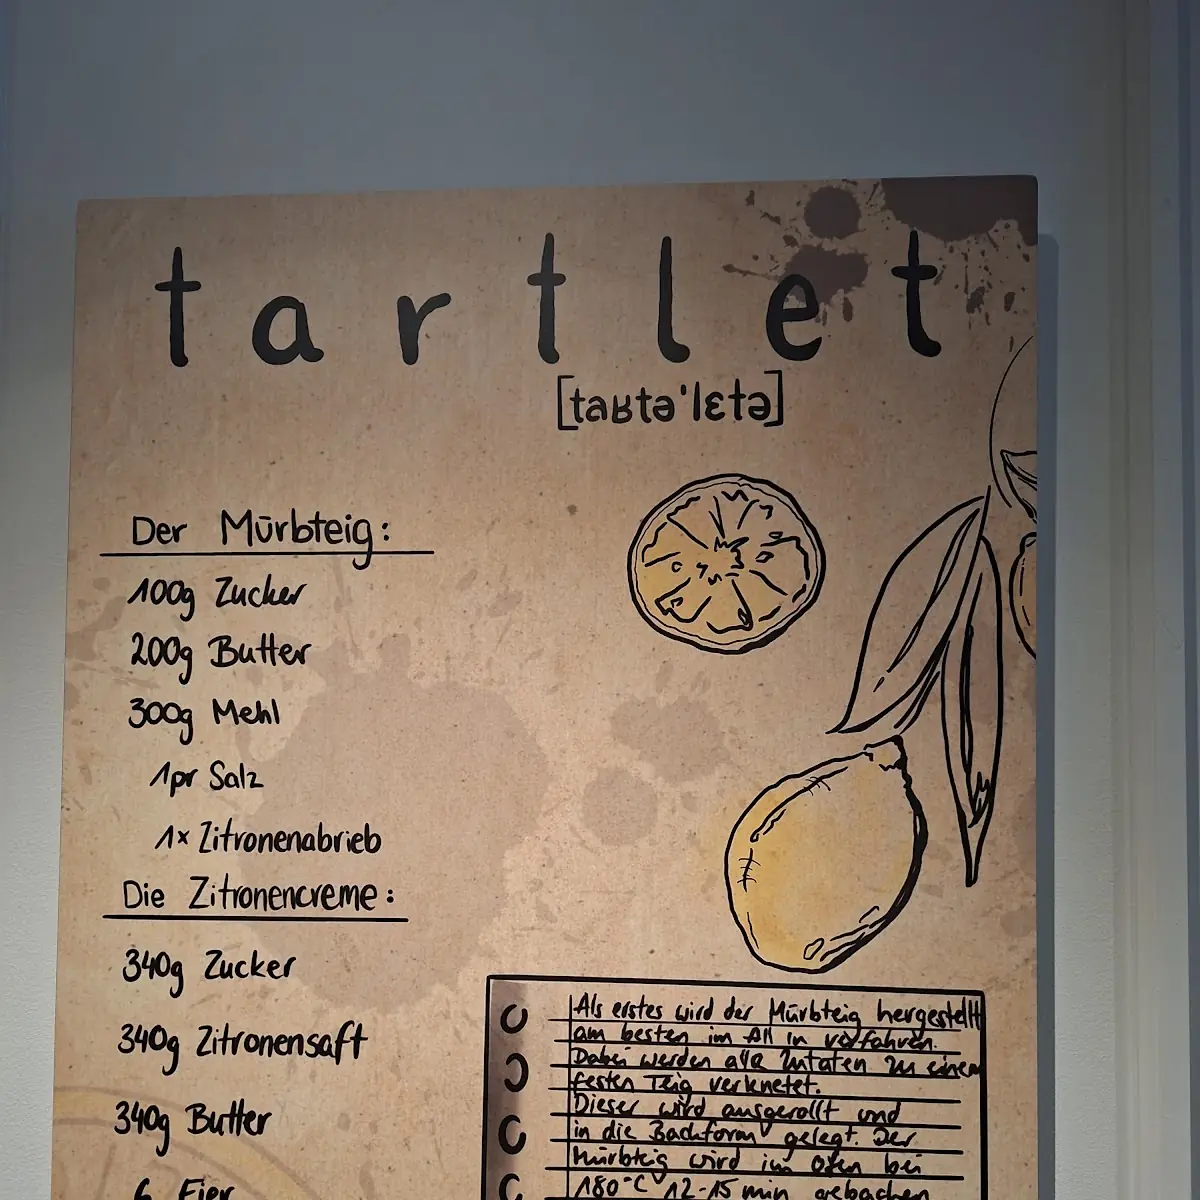 tartlet
[taʁtə'lɛtə]
Der Mürbteig:
100g Zucker
200g Butter
300g Mehl
1pr Salz
1x Zitronenabrieb
Die Zitronencreme:
340g Zucker
340g Zitronensaft
340g Butter
6 Eier
Als erstes wird der Mürbteig hergestellt
am besten im All in verfahren.
Dabei werden alle Zutaten zu einem
festen Teig verknetet.
Dieser wird ausgerollt und
in die Backform gelegt. Der
Mürbteig wird im Ofen bei
180°C 12-15 min gebacken